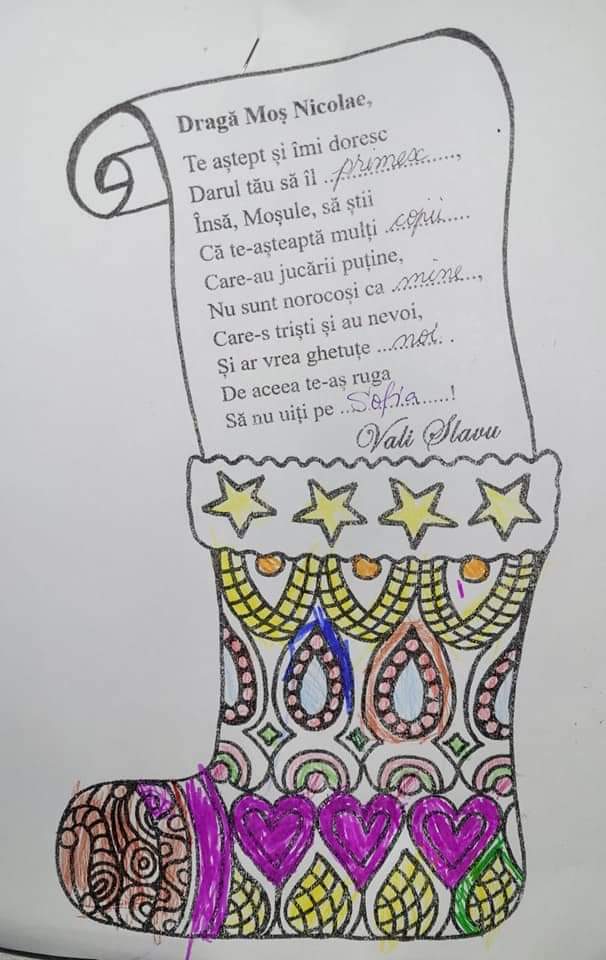 Dragă Moș Nicolae,
Te aștept și îmi doresc
Darul tău să îl primesc,
Însă, Moșule, să știi
Că te-așteaptă mulți copii
Care-au jucării puține,
Nu sunt norocoși ca mine,
Care-s triști și au nevoi,
Și ar vrea ghetuțe noi.
De aceea te-aș ruga
Să nu uiți pe Sofia!
Vali Slavu